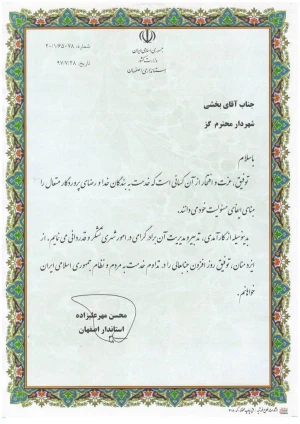 جمهوری اسلامی ایران
وزارت کشور
استانداری اصفهان
شماره: ۲۰/۱/۶۵۰۷۸
تاریخ: ۹۷/۷/۲۸
جناب آقای بخشی
شهردار محترم گز
باسلام
توفیق، عزت و افتخار از آن کسانی است که خدمت به بندگان خدا و رضای پروردگار متعال را
مبنای ایفای مسئولیت خود می دانند.
بدینوسیله از کارآمدی، تدبیر و مدیریت آن برادر گرامی در امور شهری تشکر و قدردانی می نمایم. از
ایزد منان، توفیق روز افزون جنابعالی را در تداوم خدمت به مردم و نظام جمهوری اسلامی ایران
خواهانم.
محسن مهرعلیزاده
استاندار اصفهان